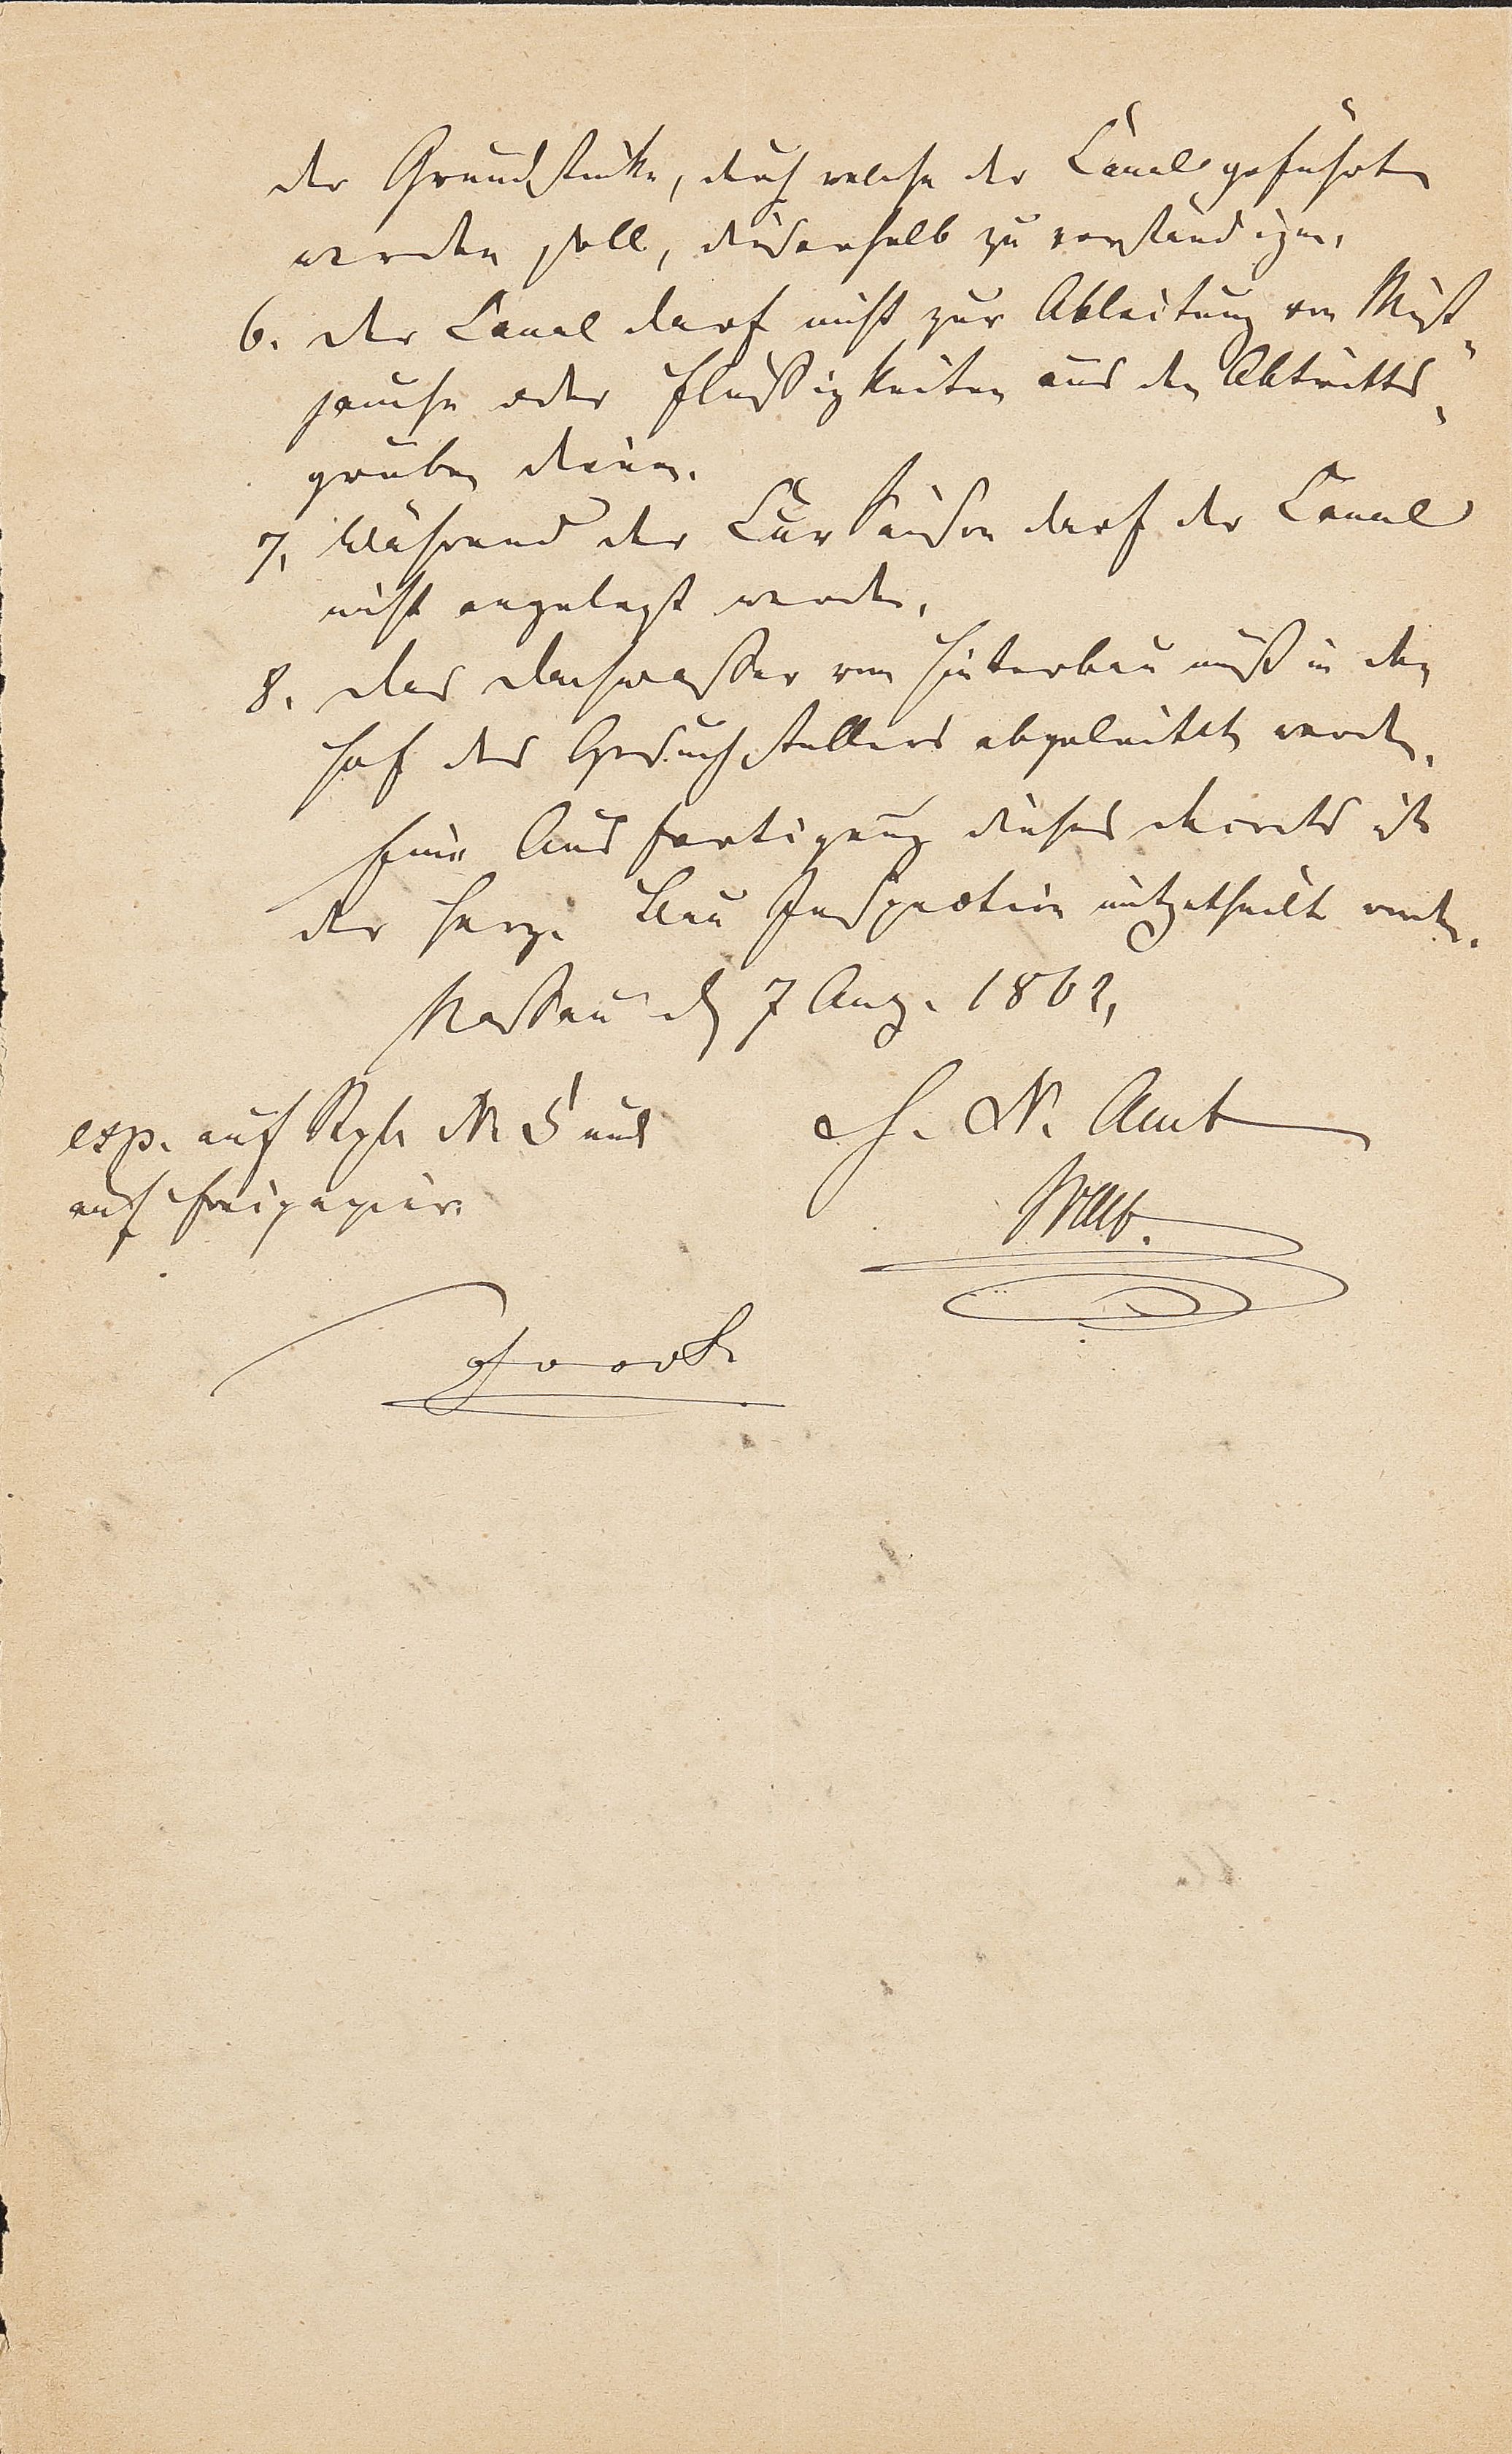 der Grundstücke, durch welche der Canal geführt
werden soll, dieserhalb zu verständigen.
6. Der Canal darf nicht zur Ableitung von Mist-
jauche oder Flüssigkeiten aus den Abtritts-
gruben dienen.
7, Während der Cur Saison darf der Canal
nicht angelegt werden.
8. Das Dachwasser vom Hinterbau muß in den
Hof des Gesuchstellers abgeleitet werden.
Eine Ausfertigung dieses Decrets ist
der Herz. Bau Inspection mitgetheilt worden.
Nassau d 7 Aug. 1862,
H. N. Amt
exp. auf Nr 5 und
auf Freipapier.